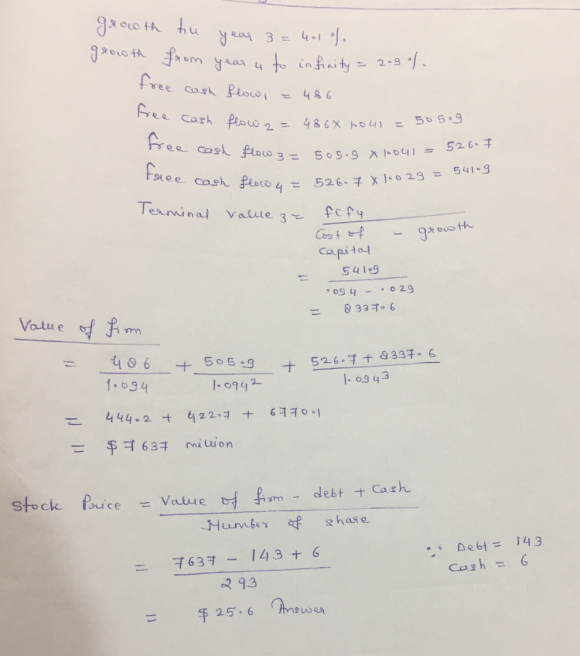 growth till year 3 = 4.1 %.
growth from year 4 to infinity = 2.9 %.
free cash flow1 = 486
free cash flow2 = 486 x 1.041 = 505.9
free cash flow3 = 505.9 x 1.041 = 526.7
free cash flow4 = 526.7 x 1.029 = 541.9
Terminal Value 3 = fcf4 / Cost of capital - growth
= 541.9 / .094 - .029
= 8337.6
Value of firm
= 486 / 1.094 + 505.9 / 1.094² + 526.7 + 8337.6 / 1.094³
= 444.2 + 422.7 + 6770.1
= $ 7637 million
Stock Price = Value of firm - debt + Cash / Number of share
= 7637 - 143 + 6 / 293
∵ Debt = 143
Cash = 6
= $ 25.6 Answer